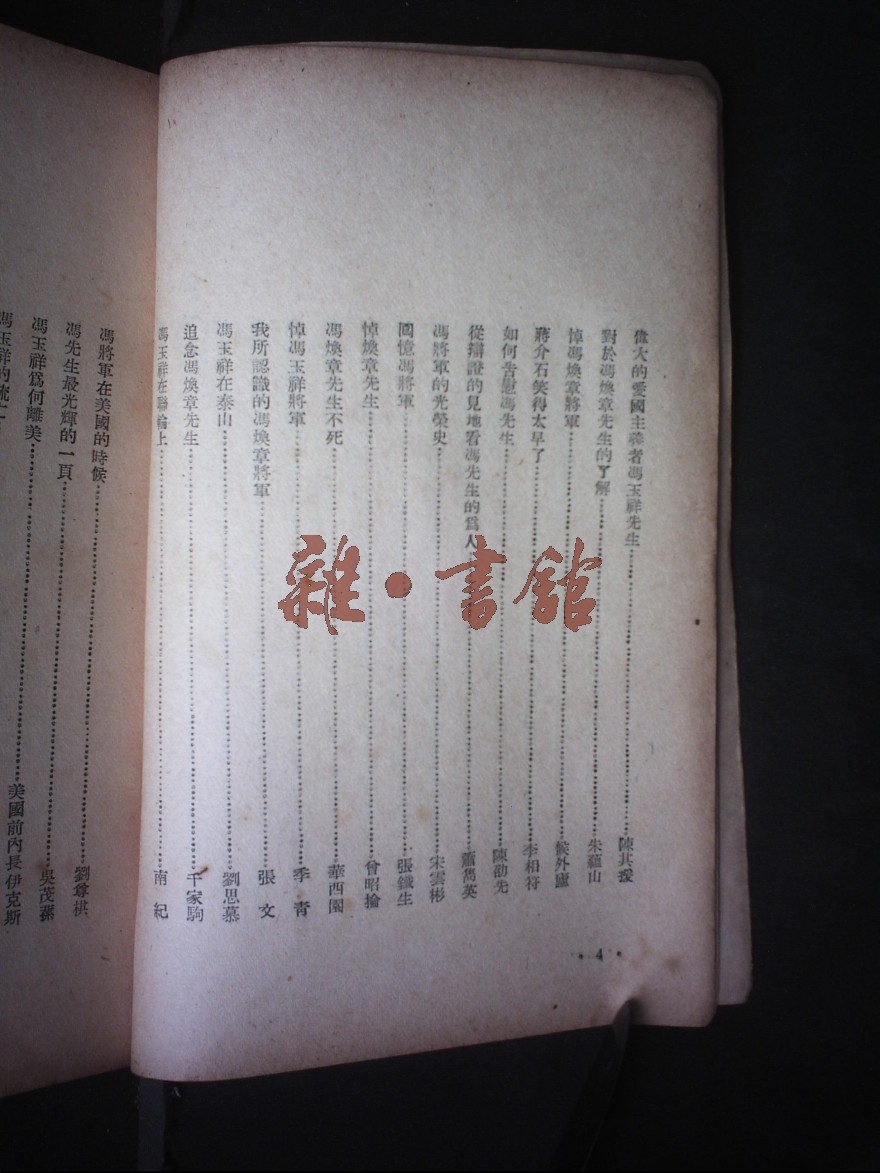 偉大的愛國主義者馮玉祥先生……陳其瑗
對於馮煥章先生的了解……朱蘊山
悼馮煥章將軍……侯外廬
蔣介石笑得太早了……李相符
如何告慰馮先生……陳劭先
從辯證的見地看馮先生的爲人……蕭雋英
馮將軍的光榮史……宋雲彬
回憶馮將軍……張鐵生
悼煥章先生……曾昭掄
馮煥章先生不死……華西園
悼馮玉祥將軍……季青
我所認識的馮煥章將軍……張文
馮玉祥在泰山……劉思慕
追念馮煥章先生……千家駒
馮玉祥在聯論上……南紀
·4·
雜·書館
馮將軍在美國的時候
馮先生最光輝的一頁……劉尊棋
馮玉祥爲何離美……吳茂蓀
馮玉祥的……美國前內長伊克斯